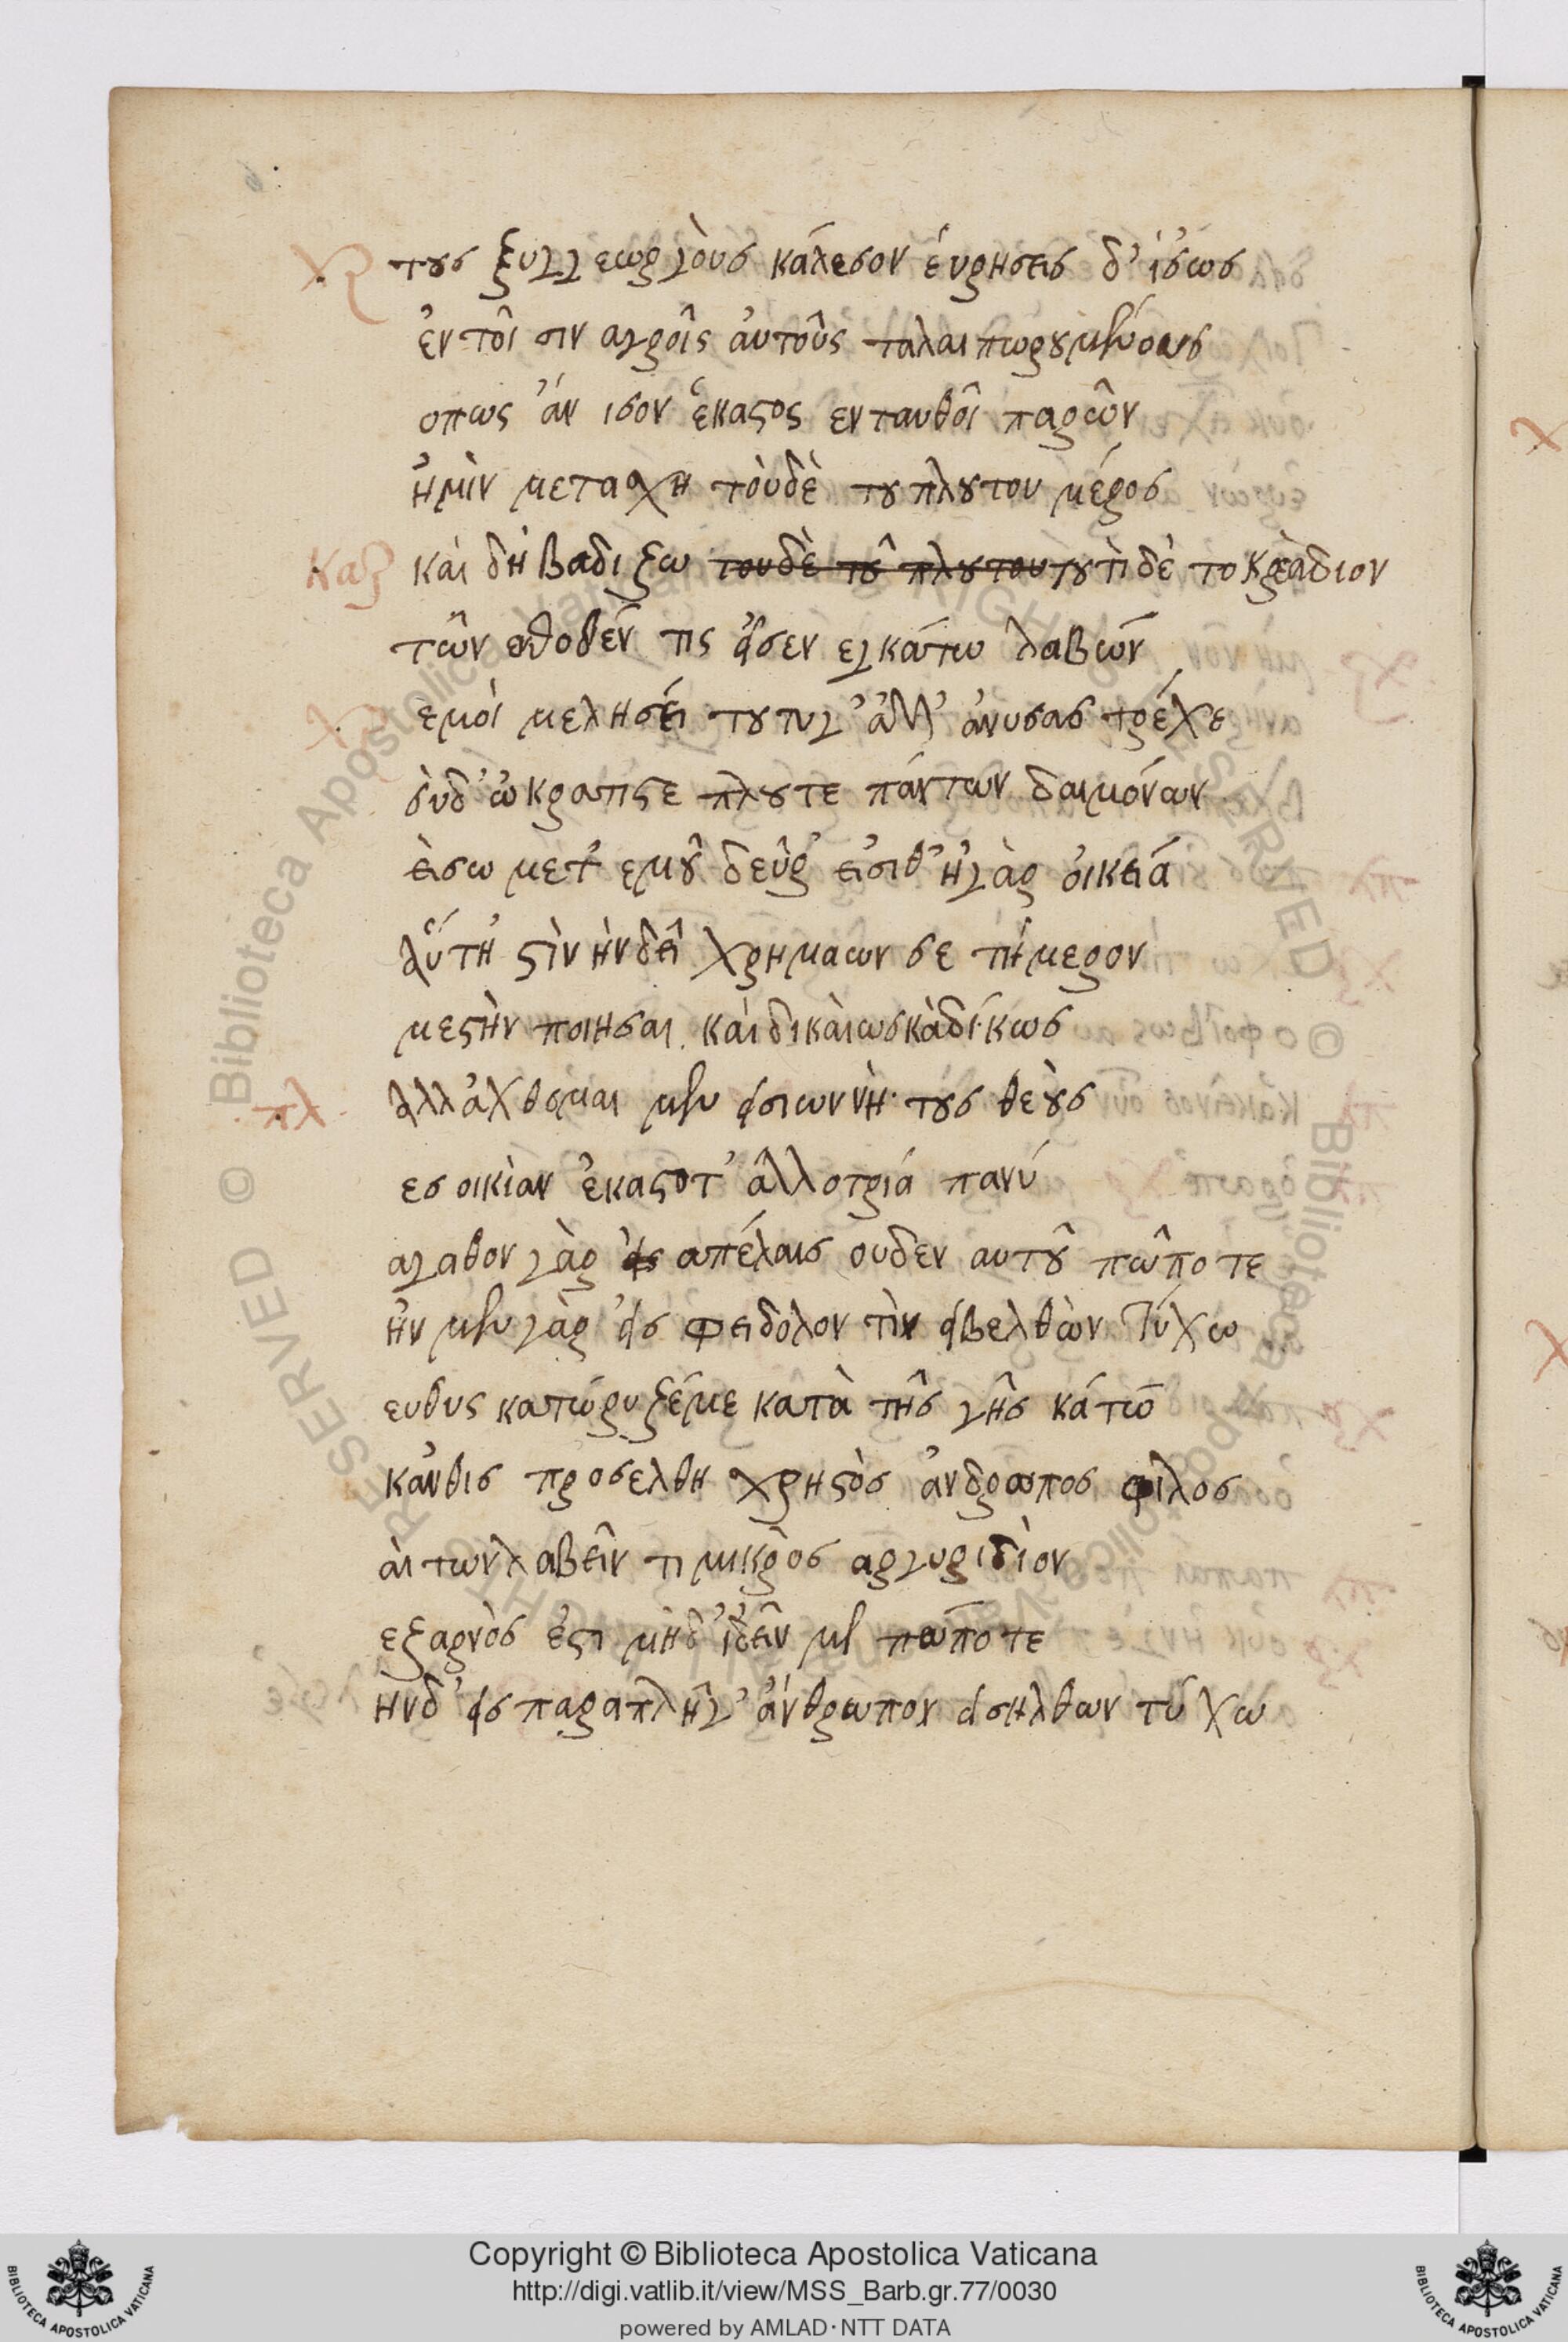 χρ τους ξυγγεωργὸυσ κάλεσον ἑυρησεισ δ' ἴσωσ
ἐν τοῖ σιν αγροῖς ἀυτοὺς ταλαιπωρουμένουσ
οπως ἂν ισον ἕκαστος ενταυθοῖ παρὼν
ἡμὶν μετασχη τὸυδὲ του πλουτου μέρος
Καρ και δὴ βαδιζω τουδὲ τοῦ πλουτου τουτὶ δὲ το κρεάδιον
τῶν ενδοθέν τις εἴσενεγκάτω λαβών
χρ εμόι μελησέι τουτογ' ἀλλ' ἀνυσασ τρέχε
σὺδ' ὦ κρατιστε πλουτε πάντων δαιμόνων
ἐισω μετ' εμοῦ δεῦρ' εἴσιθ' ἡ γὰρ ὀικειά
ἁύτη στὶν ἡν δεῖ χρηματων σε τήμερον
μεστὴν ποιησαι καὶ δικάιωσ κἀδίκωσ
πλ αλλ ἄχθομαι μὲν εισιων νὴ τους θεὸυσ
εσ οικὶαν ἐκαστοτ' ἀλλοτριά πανύ
αγαθον γὰρ εισ απέλαυσ ουδεν αυτοῦ πώποτε
ἢν μὲν γὰρ εἰσ φειδόλον τὶν εισελθὼν τύχω
ευθυς κατώρυξέμε κατὰ τῆσ γῆσ κάτω
κἄυθισ προσελθη χρηστὸσ ἄνδρωποσ φιλοσ
ἀιτων λαβεῖν τι μικρὸσ αργυριδὶον
εξαρνὸσ ἐστι μὴδ' ἰδεῖν με πώποτε
ηνδ' εισ παραπλῆγ' ἄνθρωπον εισηλθων τύχω
Copyright © Biblioteca Apostolica Vaticana
http://digi.vatlib.it/view/MSS_Barb.gr.77/0030
powered by AMLAD·NTT DATA